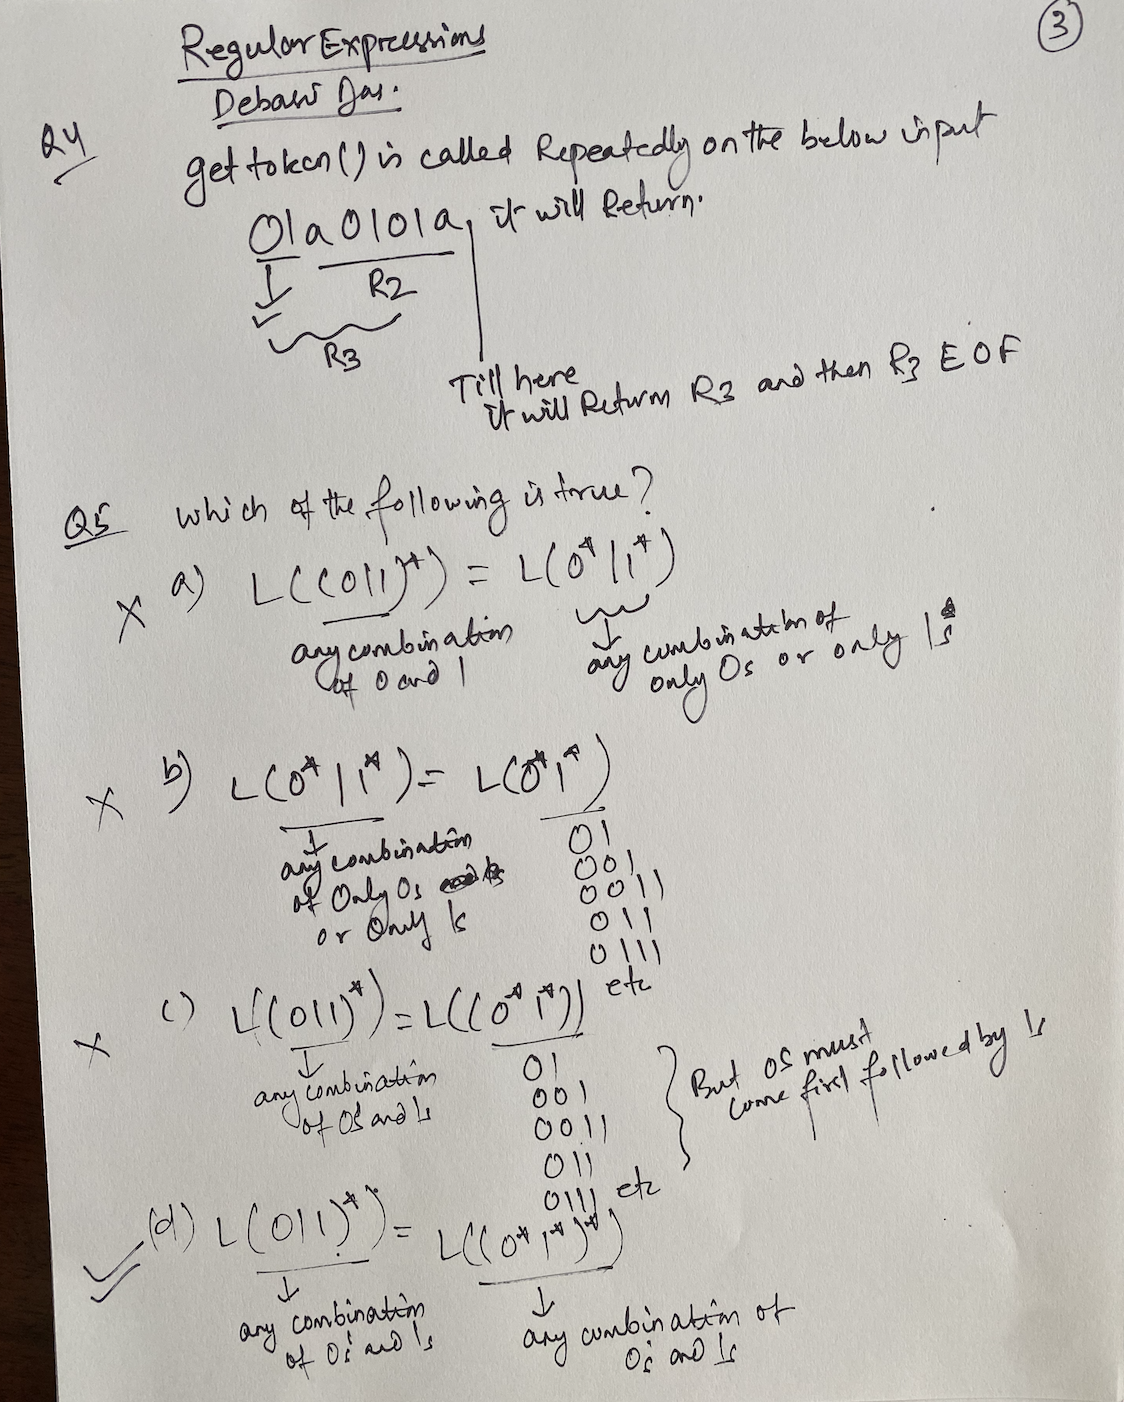 3
Regular Expressions
Debasis Das.
Q4
get token() is called Repeatedly on the below input
01a0101a, it will Return.
R2
R3
Till here
it will Return R3 and then R3 EOF
Q5 which of the following is true?
X a) L((0|1)*) = L(0*|1*)
any combination of 0 and 1
any combination of only 0s or only 1s
X b) L(0*|1*) = L(0*1*)
any combination of Only 0s or Only 1s
01
001
0011
011
0111
etc
X c) L((0|1)*) = L((0*1*))
any combination of 0s and 1s
01
001
0011
011
0111 etc
But 0s must come first followed by 1s
(d) L(0|1)*) = L((0*1*)*)
any combination of 0s and 1s
any combination of 0s and 1s